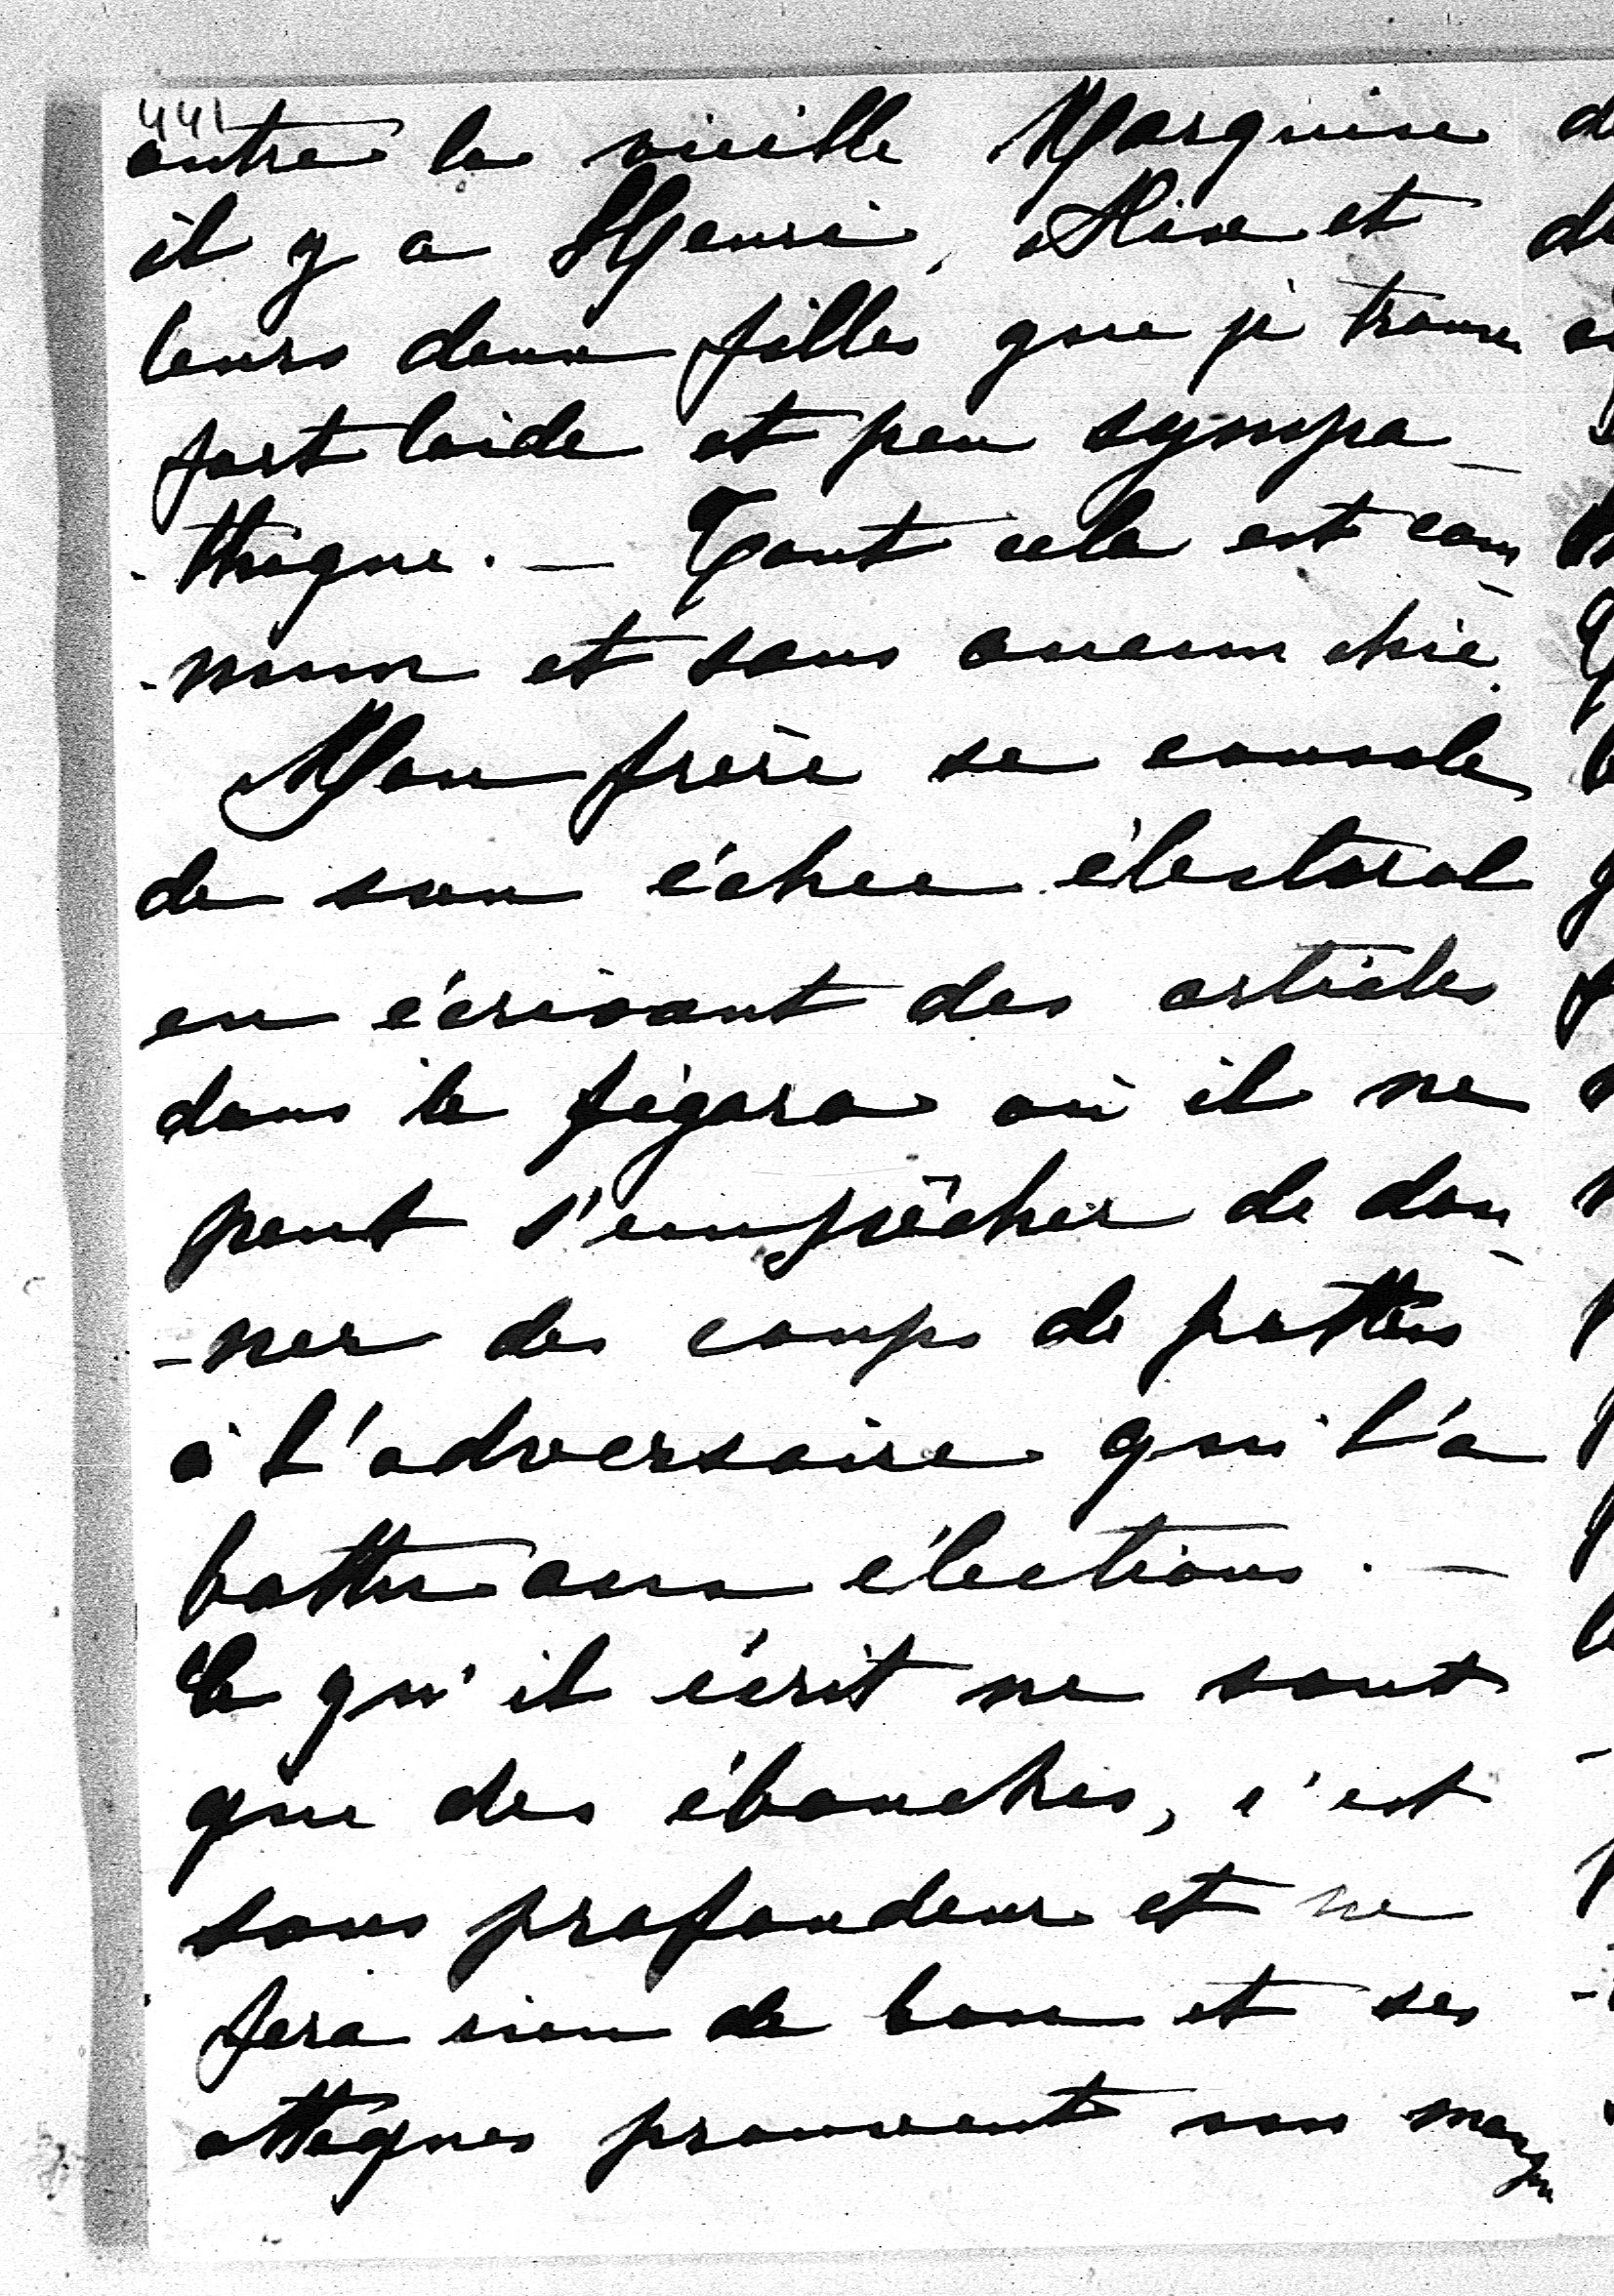 441
outre la vieille Marquise
il y a Henri, Alix et
leurs deux filles que je trouve
fort laide et peu sympa-
-thique. — Tout cela est com-
-mun et sans aucun chic.
Mon frère se console
de son échec électoral
en écrivant des articles
dans le figaro où il ne
peut s'empêcher de don-
-ner des coups de pattes
à l'adversaire qui l'a
battu aux élections. —
Ce qu'il écrit ne sont
que des ébauches, c'est
sans profondeur et ne
fera rien de bon et ses
attaques prouvent son manque